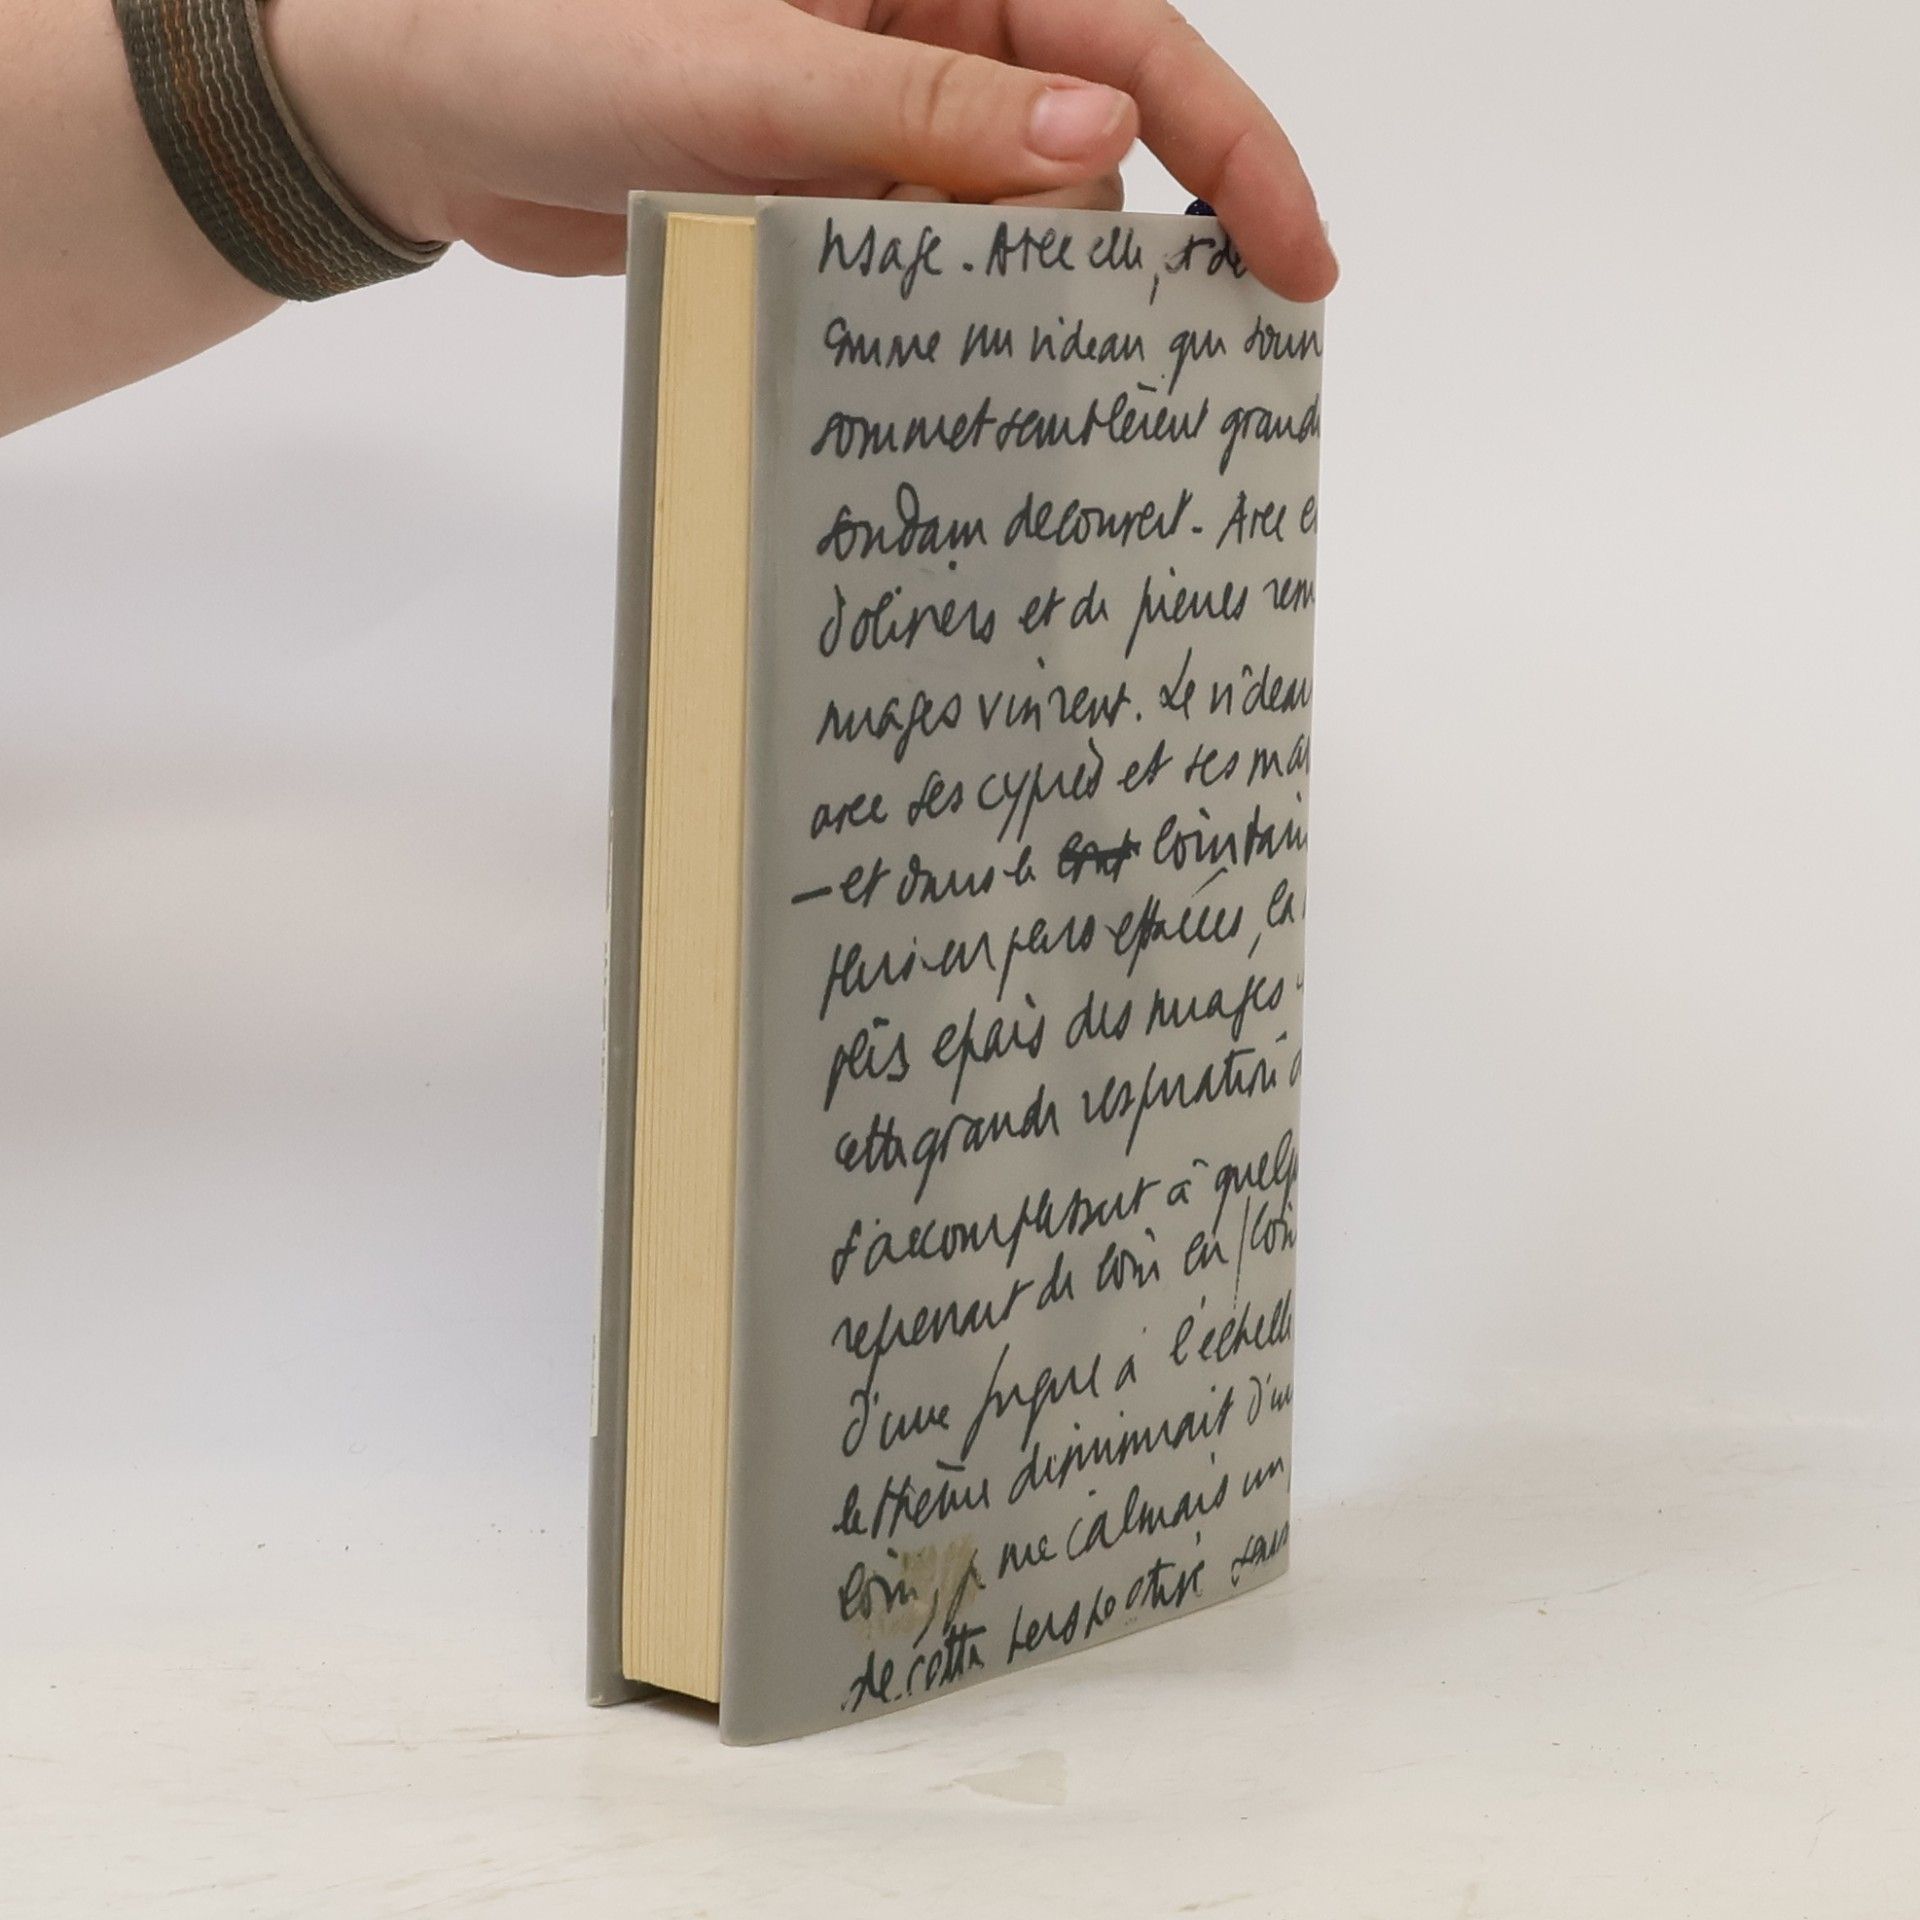 nsage. Avec elle, et de
comme un rideau qui s'ouv
sommet semblèrent grandi
soudain découvert. Avec e
d'oliviers et de pierres rem
nuages vinrent. Le rideau
avec ses cyprès et ses ma
— et dans le lointain
plus en plus espacées, la
plis épais des nuages
cette grande respiration
s'accomplissait à quelq
reprenait de loin en loin
d'une fugue à l'échelle
le thème diminuait d'un
loin, je me calmais un
de cette perspective sans